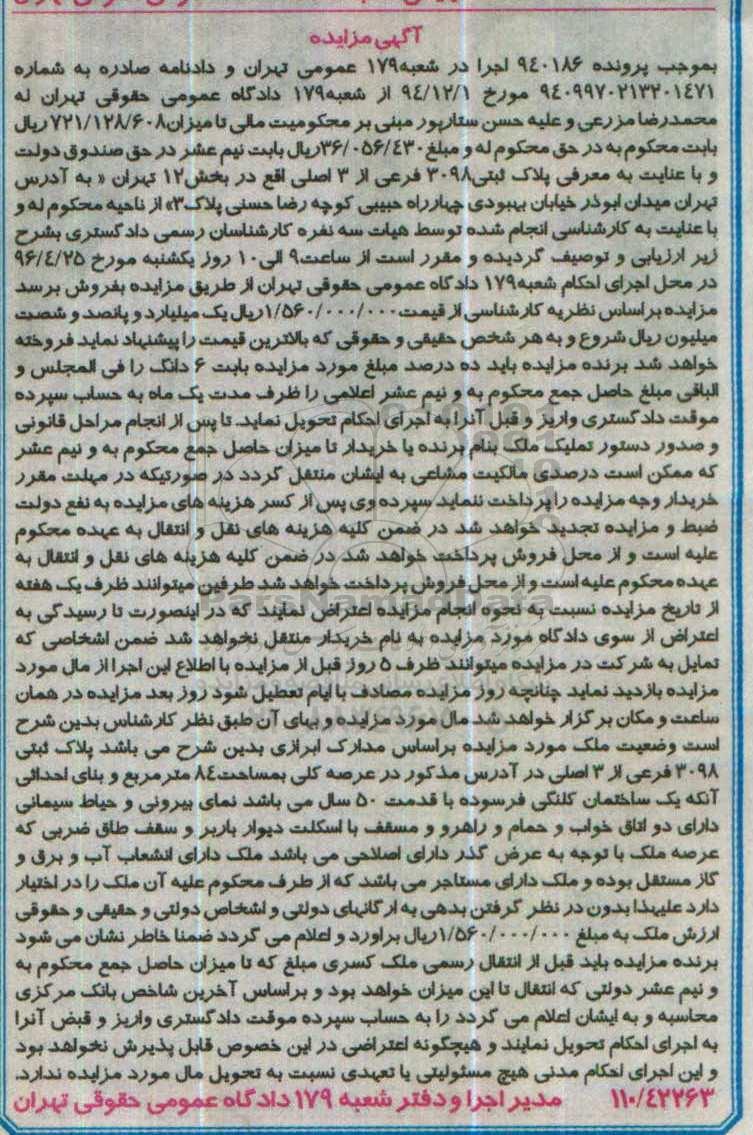 آگهی مزایده
بموجب پرونده ۹٤۰۱۸۶ اجرا در شعبه۱۷۹ عمومی تهران و دادنامه صادره به شماره
۹٤۰۹۹۷۰۲۱۳۲۰۱٤۷۱ مورخ ۹٤/۱۲/۱ از شعبه۱۷۹ دادگاه عمومی حقوقی تهران له
محمدرضا مزرعی و علیه حسن ستارپور مبنی بر محکومیت مالی تا میزان۷۲۱/۱۲۸/۶۰۸ ریال
بابت محکوم به در حق محکوم له و مبلغ ۳۶/۰۵۶/٤۳۰ریال بابت نیم عشر در حق صندوق دولت
و با عنایت به معرفی پلاک ثبتی۳۰۹۸ فرعی از ۳ اصلی اقع در بخش۱۲ تهران « به آدرس
تهران میدان ابوذر خیابان بهبودی چهارراه حبیبی کوچه رضا حسنی پلاک۳» از ناحیه محکوم له و
با عنایت به کارشناسی انجام شده توسط هیات سه نفره کارشناسان رسمی دادگستری بشرح
زیر ارزیابی و توصیف گردیده و مقرر است از ساعت۹ الی۱۰ روز یکشنبه مورخ ۹۶/٤/۲۵
در محل اجرای احکام شعبه۱۷۹ دادگاه عمومی حقوقی تهران از طریق مزایده بفروش برسد
مزایده براساس نظریه کارشناسی از قیمت۱/۵۶۰/۰۰۰/۰۰۰ریال یک میلیارد و پانصد و شصت
میلیون ریال شروع و به هر شخص حقیقی و حقوقی که بالاترین قیمت را پیشنهاد نماید فروخته
خواهد شد برنده مزایده باید ده درصد مبلغ مورد مزایده بابت ۶ دانگ را فی المجلس و
الباقی مبلغ حاصل جمع محکوم به و نیم عشر اعلامی را ظرف مدت یک ماه به حساب سپرده
موقت دادگستری واریز و قبل آنرا به اجرای احکام تحویل نماید. تا پس از انجام مراحل قانونی
و صدور دستور تملیک ملک بنام برنده یا خریدار تا میزان حاصل جمع محکوم به و نیم عشر
که ممکن است درصدی مالکیت مشاعی به ایشان منتقل گردد در صورتیکه در مهلت مقرر
خریدار وجه مزایده را پرداخت ننماید سپرده وی پس از کسر هزینه های مزایده به نفع دولت
ضبط و مزایده تجدید خواهد شد در ضمن کلیه هزینه های نقل و انتقال به عهده محکوم
علیه است و از محل فروش پرداخت خواهد شد در ضمن کلیه هزینه های نقل و انتقال به
عهده محکوم علیه است و از محل فروش پرداخت خواهد شد طرفین میتوانند ظرف یک هفته
از تاریخ مزایده نسبت به نحوه انجام مزایده اعتراض نمایند که در اینصورت تا رسیدگی به
اعتراض از سوی دادگاه مورد مزایده به نام خریدار منتقل نخواهد شد ضمن اشخاصی که
تمایل به شرکت در مزایده میتوانند ظرف ۵ روز قبل از مزایده با اطلاع این اجرا از مال مورد
مزایده بازدید نماید چنانچه روز مزایده مصادف با ایام تعطیل شود روز بعد مزایده در همان
ساعت و مکان برگزار خواهد شد مال مورد مزایده و بهای آن طبق نظر کارشناس بدین شرح
است وضعیت ملک مورد مزایده براساس مدارک ابرازی بدین شرح می باشد پلاک ثبتی
۳۰۹۸ فرعی از ۳ اصلی در آدرس مذکور در عرصه کلی بمساحت۸٤ مترمربع و بنای احداثی
آنکه یک ساختمان کلنگی فرسوده با قدمت ۵۰ سال می باشد نمای بیرونی و حیاط سیمانی
دارای دو اتاق خواب و حمام و راهرو و مسقف با اسکلت دیوار باربر و سقف طاق ضربی که
عرصه ملک با توجه به عرض گذر دارای اصلاحی می باشد ملک دارای انشعاب آب و برق و
گاز مستقل بوده و ملک دارای مستاجر می باشد که از طرف محکوم علیه آن ملک را در اختیار
دارد علیهذا بدون در نظر گرفتن بدهی به ارگانهای دولتی و اشخاص دولتی و حقیقی و حقوقی
ارزش ملک به مبلغ ۱/۵۶۰/۰۰۰/۰۰۰ریال براورد و اعلام می گردد ضمنا خاطر نشان می شود
برنده مزایده باید قبل از انتقال رسمی ملک کسری مبلغ که تا میزان حاصل جمع محکوم به
و نیم عشر دولتی که انتقال تا این میزان خواهد بود و براساس آخرین شاخص بانک مرکزی
محاسبه و به ایشان اعلام می گردد را به حساب سپرده موقت دادگستری واریز و قبض آنرا
به اجرای احکام تحویل نمایند و هیچگونه اعتراضی در این خصوص قابل پذیرش نخواهد بود
و این اجرای احکام مدنی هیچ مسئولیتی یا تعهدی نسبت به تحویل مال مورد مزایده ندارد.
۱۱۰/٤۲۲۶۳ مدیر اجرا و دفتر شعبه ۱۷۹ دادگاه عمومی حقوقی تهران